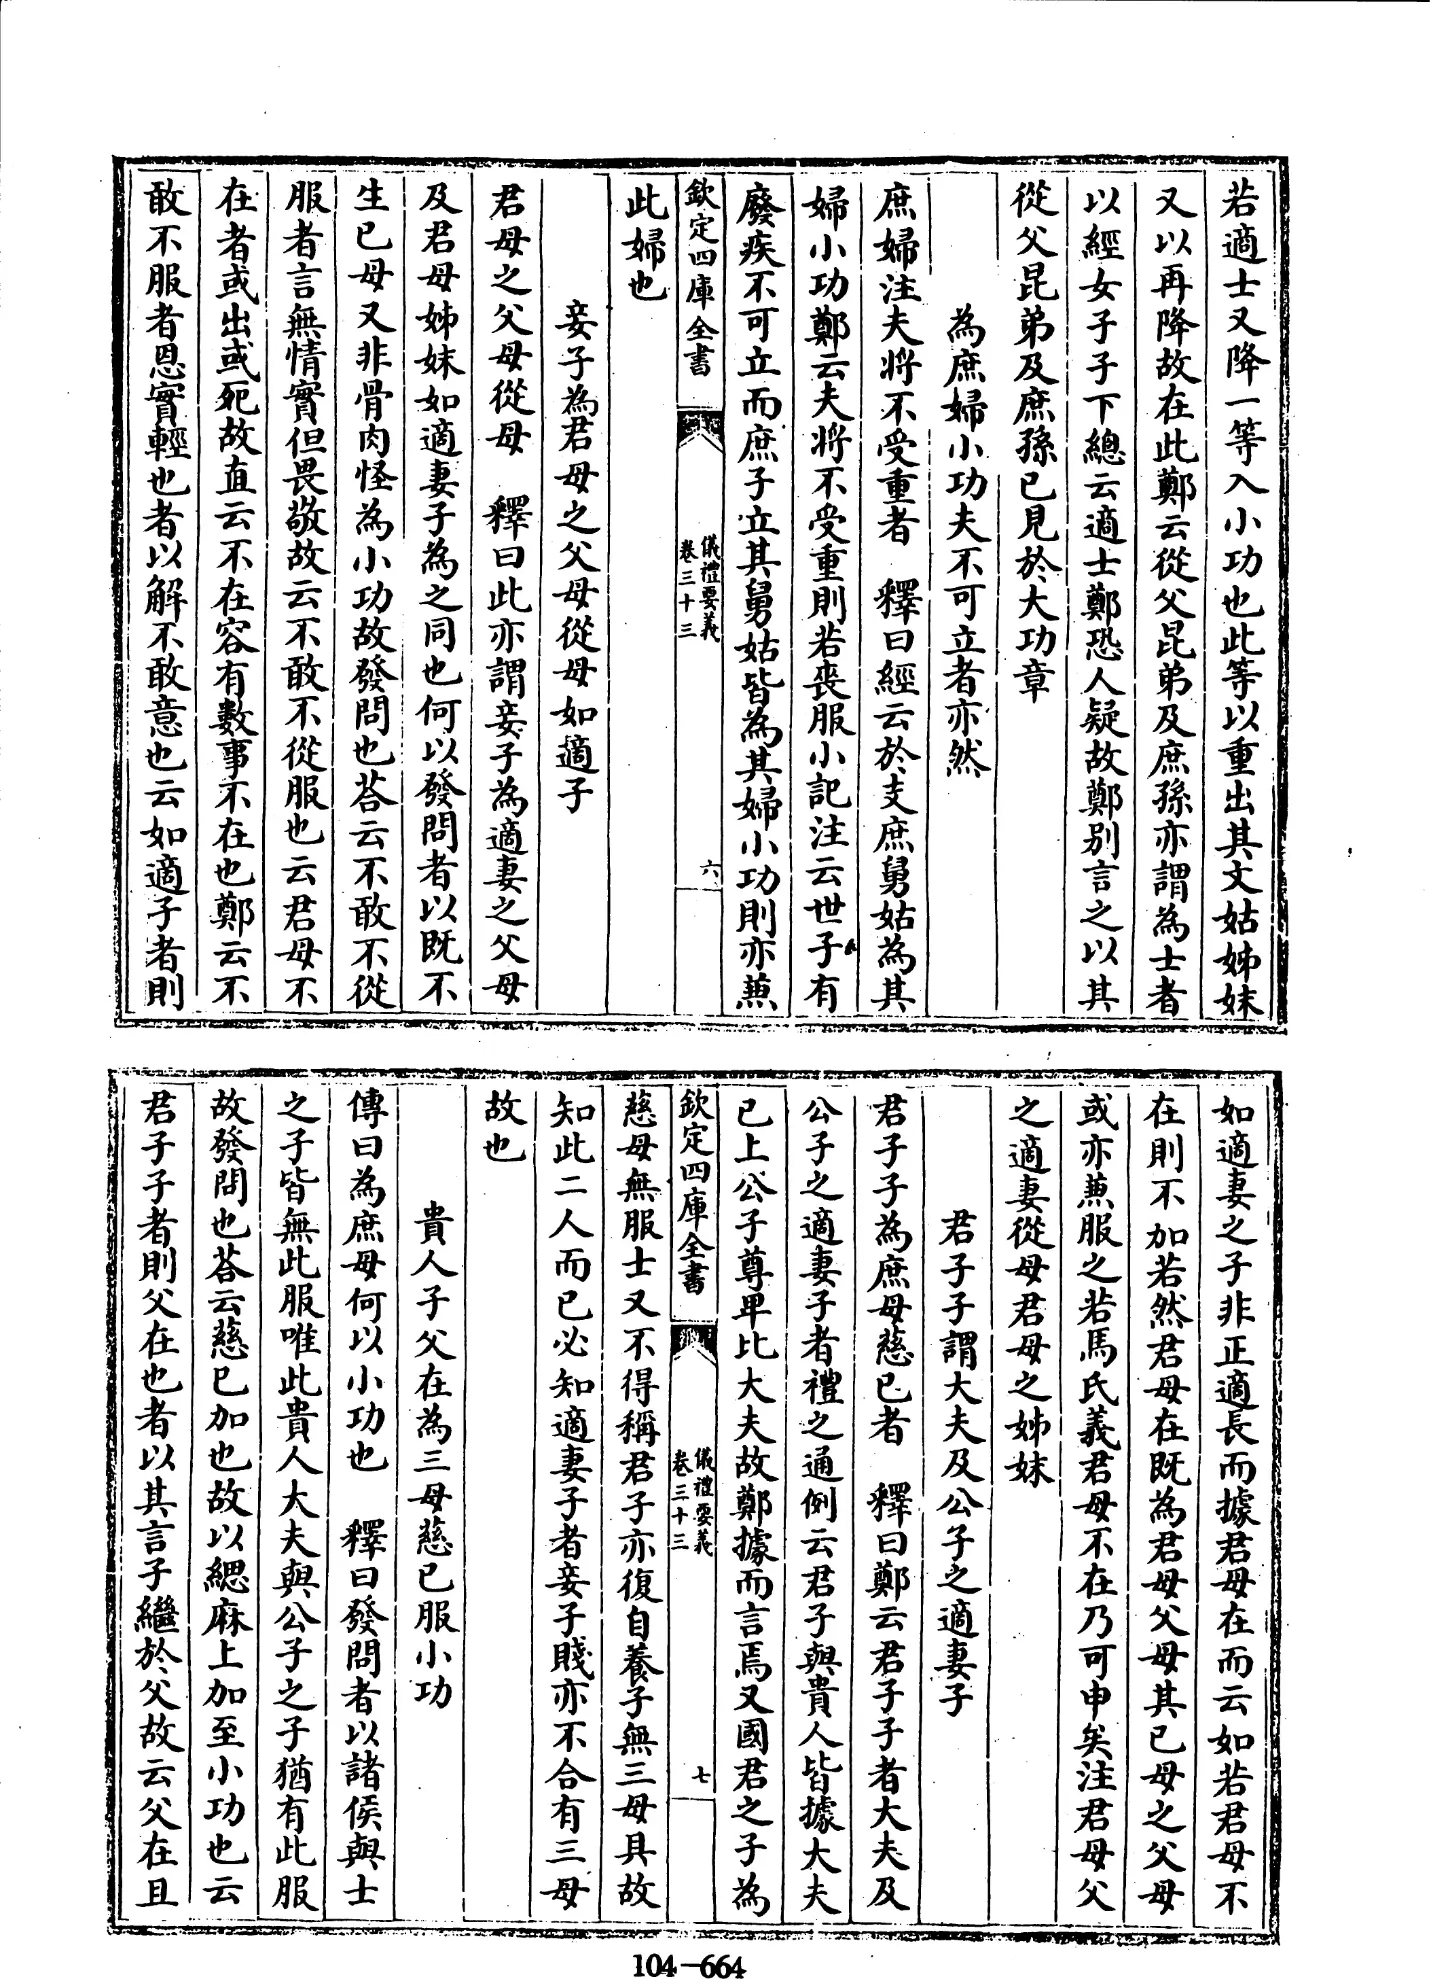 若適士又降一等入小功也此等以重出其文姑姊妹
又以再降故在此鄭云從父昆弟及庶孫亦謂為士者
以經女子子下總云適士鄭恐人疑故鄭別言之以其
從父昆弟及庶孫已見於大功章
為庶婦小功夫不可立者亦然
庶婦注夫將不受重者　釋曰經云於支庶舅姑為其
婦小功鄭云夫將不受重則若喪服小記注云世子有
廢疾不可立而庶子立其舅姑皆為其婦小功則亦兼
欽定四庫全書
儀禮要義
卷三十三
六
此婦也
妾子為君母之父母從母如適子
君母之父母從母　釋曰此亦謂妾子為適妻之父母
及君母姊妹如適妻子為之同也何以發問者以既不
生已母又非骨肉怪為小功故發問也荅云不敢不從
服者言無情實但畏敬故云不敢不從服也云君母不
在者或出或死故直云不在容有數事不在也鄭云不
敢不服者恩實輕也者以解不敢意也云如適子者則
如適妻之子非正適長而據君母在而云如若君母不
在則不加若然君母在既為君母父母其已母之父母
或亦兼服之若馬氏義君母不在乃可申矣注君母父
之適妻從母君母之姊妹
君子子謂大夫及公子之適妻子
君子子為庶母慈已者　釋曰鄭云君子子者大夫及
公子之適妻子者禮之通例云君子與貴人皆據大夫
已上公子尊卑比大夫故鄭據而言焉又國君之子為
欽定四庫全書
儀禮要義
卷三十三
七
慈母無服士又不得稱君子亦復自養子無三母具故
知此二人而已必知適妻子者妾子賤亦不合有三母
故也
貴人子父在為三母慈已服小功
傳曰為庶母何以小功也　釋曰發問者以諸侯與士
之子皆無此服唯此貴人大夫與公子之子猶有此服
故發問也荅云慈已加也故以緦麻上加至小功也云
君子子者則父在也者以其言子繼於父故云父在且
104-664